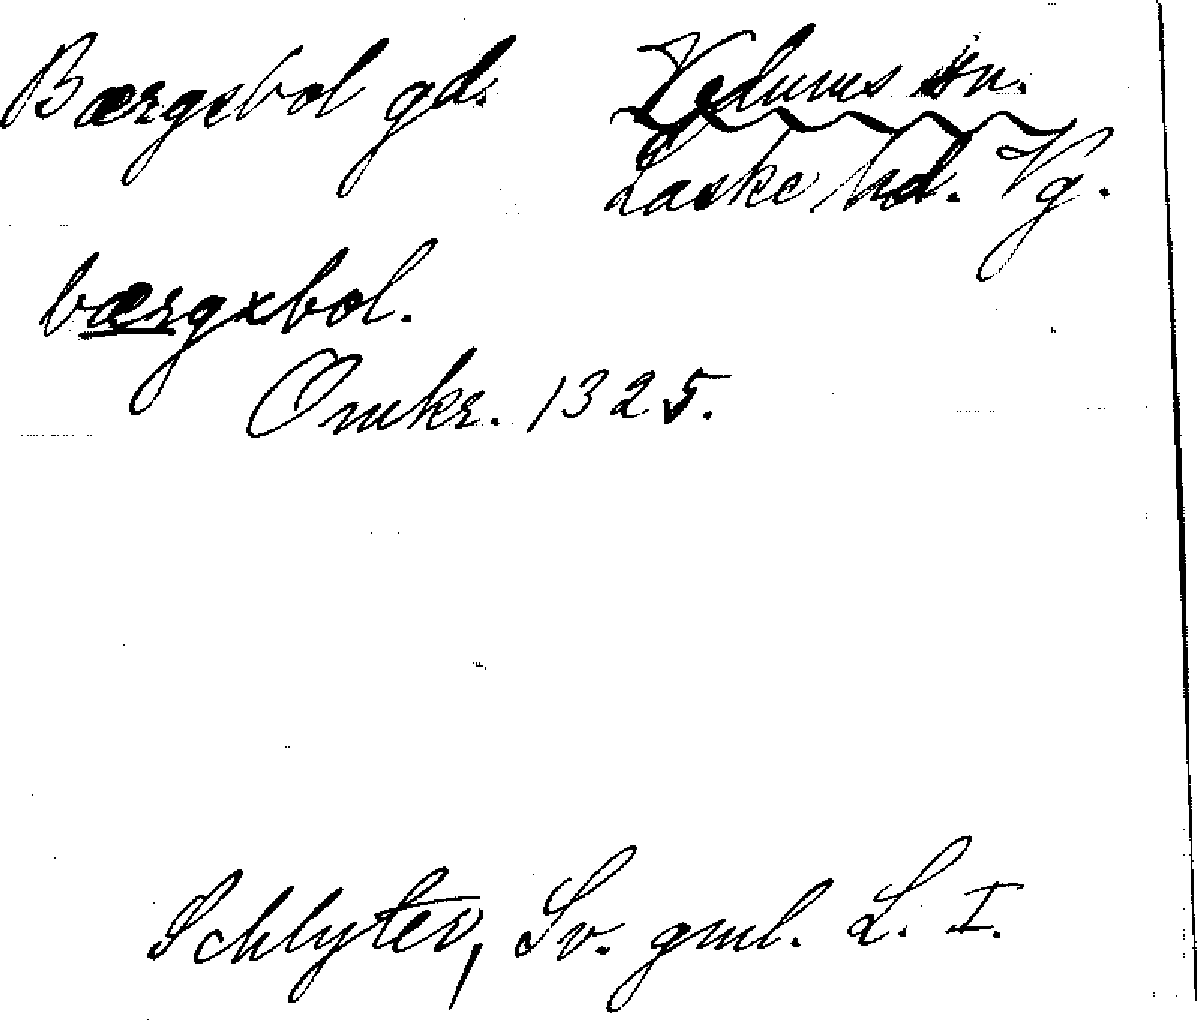 Bærgsbol gd. Vedums sn.
Laske hd. Vg.
bærgxbol.
Omkr. 1325.
Schlyter, Sv. gml. L. I.